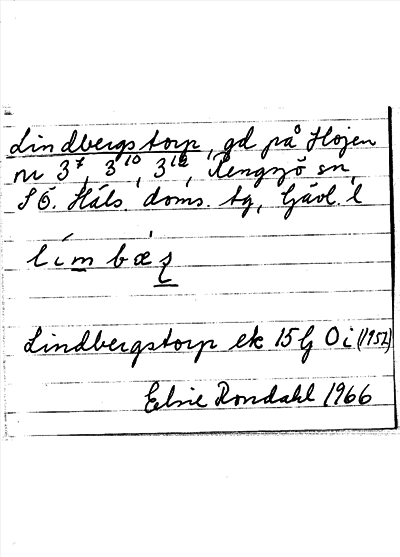 Lindbergstorp, gd på Höjen
nr 3⁷, 3¹⁰, 3¹², Rengsjö sn,
SÖ. Häls. doms. tg, Gävl. l
Lindbergstorp ek 15G Oi (1952)
Elsie Rondahl 1966